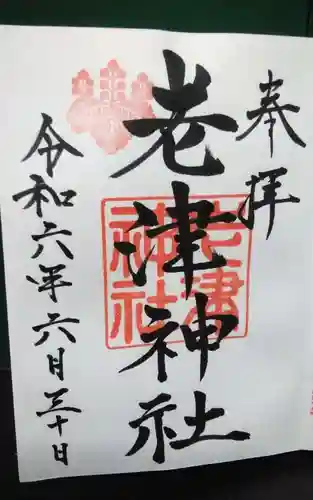 奉拝
老津神社
老津神社
令和六年六月三十日